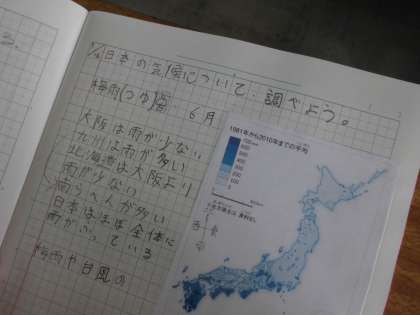 日本の気候について調べよう。
梅雨(つゆ) 6月
大阪は雨が少ない
九州は雨が多い
北海道は大阪より
雨が少ない
南らへんが多い
日本はほぼ全体に
雨がふっている
梅雨や台風の
1981年から2010年までの平均